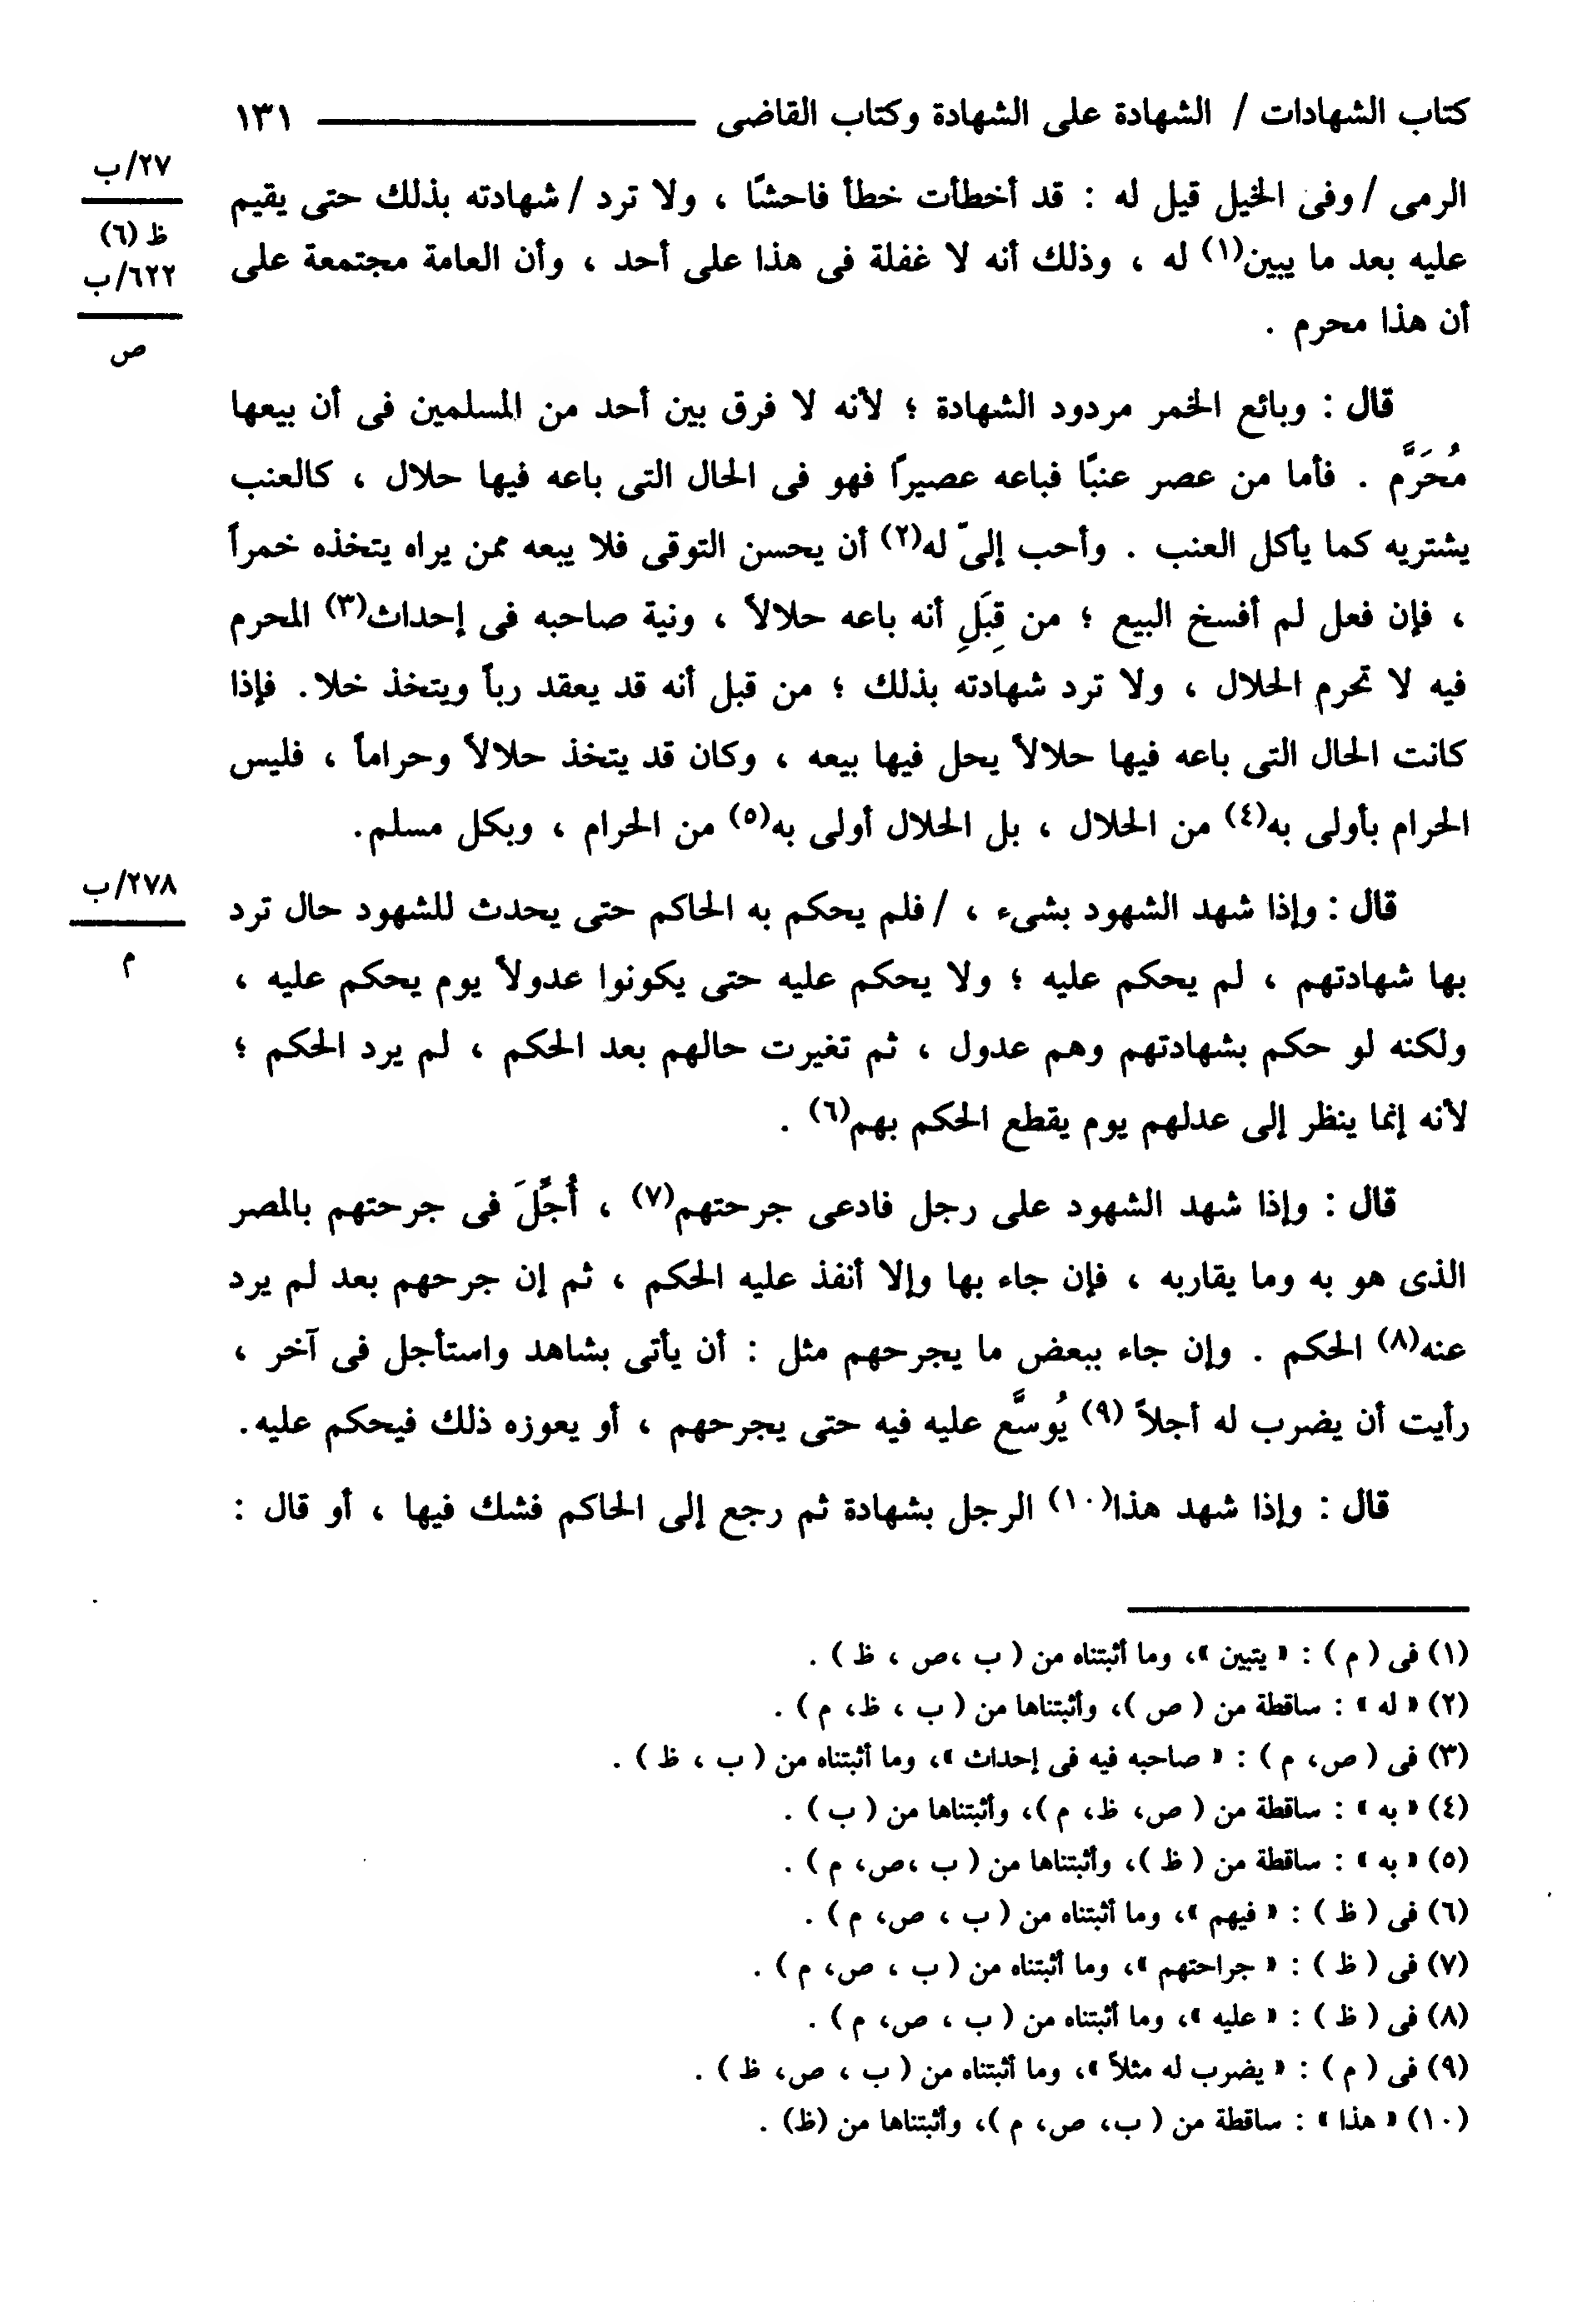 كتاب الشهادات / الشهادة على الشهادة وكتاب القاضى ــــــــــــــــــــ ١٣١
الرمى / وفى الخيل قيل له : قد أخطأت خطأ فاحشًا ، ولا ترد / شهادته بذلك حتى يقيم
عليه بعد ما يبين(١) له ، وذلك أنه لا غفلة فى هذا على أحد ، وأن العامة مجتمعة على
أن هذا محرم .
٢٧/ب
ظ (٦)
٦٢٢/ب
ص
قال : وبائع الخمر مردود الشهادة ؛ لأنه لا فرق بين أحد من المسلمين فى أن بيعها
مُحَرَّم . فأما من عصر عنبًا فباعه عصيرًا فهو فى الحال التى باعه فيها حلال ، كالعنب
يشتريه كما يأكل العنب . وأحب إلىّ له(٢) أن يحسن التوقى فلا يبعه ممن يراه يتخذه خمراً
، فإن فعل لم أفسخ البيع ؛ من قِبَلِ أنه باعه حلالاً ، ونية صاحبه فى إحداث(٣) المحرم
فيه لا تحرم الحلال ، ولا ترد شهادته بذلك ؛ من قبل أنه قد يعقد رباً ويتخذ خلا. فإذا
كانت الحال التى باعه فيها حلالاً يحل فيها بيعه ، وكان قد يتخذ حلالاً وحراماً ، فليس
الحرام بأولى به(٤) من الحلال ، بل الحلال أولى به(٥) من الحرام ، وبكل مسلم.
قال : وإذا شهد الشهود بشىء ، / فلم يحكم به الحاكم حتى يحدث للشهود حال ترد
بها شهادتهم ، لم يحكم عليه ؛ ولا يحكم عليه حتى يكونوا عدولاً يوم يحكم عليه ،
ولكنه لو حكم بشهادتهم وهم عدول ، ثم تغيرت حالهم بعد الحكم ، لم يرد الحكم ؛
لأنه إنما ينظر إلى عدلهم يوم يقطع الحكم بهم(٦) .
٢٧٨/ب
م
قال : وإذا شهد الشهود على رجل فادعى جرحتهم(٧) ، أُجِّلَ فى جرحتهم بالمصر
الذى هو به وما يقاربه ، فإن جاء بها وإلا أنفذ عليه الحكم ، ثم إن جرحهم بعد لم يرد
عنه(٨) الحكم . وإن جاء ببعض ما يجرحهم مثل : أن يأتى بشاهد واستأجل فى آخر ،
رأيت أن يضرب له أجلاً (٩) يُوسَّع عليه فيه حتى يجرحهم ، أو يعوزه ذلك فيحكم عليه.
قال : وإذا شهد هذا(١٠) الرجل بشهادة ثم رجع إلى الحاكم فشك فيها ، أو قال :
(١) فى ( م ) : « يتبين »، وما أثبتناه من ( ب ،ص ، ظ ) .
(٢) « له » : ساقطة من ( ص )، وأثبتناها من ( ب ، ظ، م ) .
(٣) فى ( ص، م ) : « صاحبه فيه فى إحداث »، وما أثبتناه من ( ب ، ظ ) .
(٤) « به » : ساقطة من ( ص، ظ، م )، وأثبتناها من ( ب ) .
(٥) « به » : ساقطة من ( ظ )، وأثبتناها من ( ب ،ص، م ) .
(٦) فى ( ظ ) : « فيهم »، وما أثبتناه من ( ب ، ص، م ) .
(٧) فى ( ظ ) : « جراحتهم »، وما أثبتناه من ( ب ، ص، م ) .
(٨) فى ( ظ ) : « عليه »، وما أثبتناه من ( ب ، ص، م ) .
(٩) فى ( م ) : « يضرب له مثلاً »، وما أثبتناه من ( ب ، ص، ظ ) .
(١٠) « هذا » : ساقطة من ( ب، ص، م )، وأثبتناها من (ظ) .